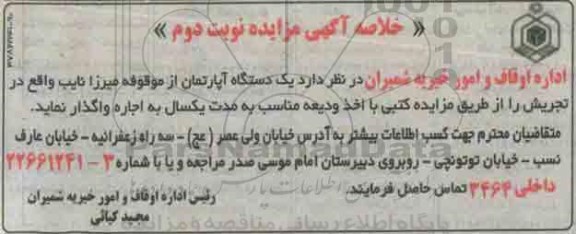 « خلاصه آگهی مزایده نوبت دوم »
اداره اوقاف و امور خیریه شمیران در نظر دارد یک دستگاه آپارتمان از موقوفه میرزا نایب واقع در
تجریش را از طریق مزایده کتبی با اخذ ودیعه مناسب به مدت یکسال به اجاره واگذار نماید.
متقاضیان محترم جهت کسب اطلاعات بیشتر به آدرس خیابان ولی عصر (عج) - سه راه زعفرانیه - خیابان عارف
نسب - خیابان توتونچی - روبروی دبیرستان امام موسی صدر مراجعه و یا با شماره ۳ - ۲۲۶۶۱۲۴۱
داخلی ۳۴۶۴ تماس حاصل فرمایند.
رئیس اداره اوقاف و امور خیریه شمیران